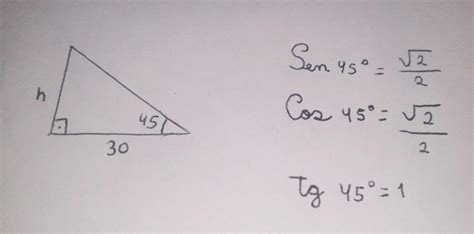 h
45
30
Sen 45° = √2/2
Cos 45° = √2/2
Tg 45° = 1